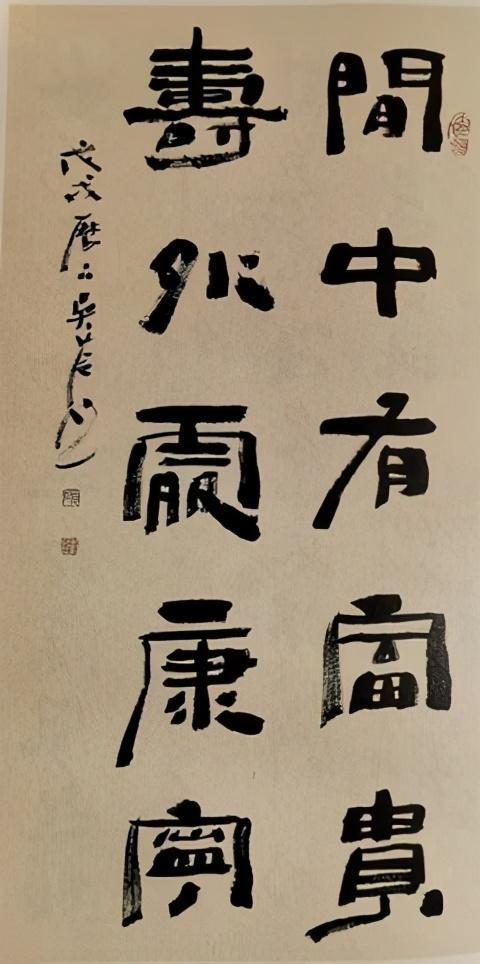 閒中有富貴
壽外康寧
戊戌歷下吳